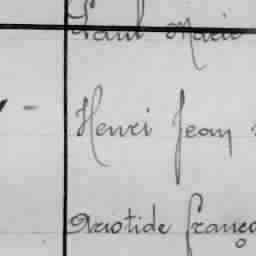 Paul Marie
Henri Jean
Aristide França